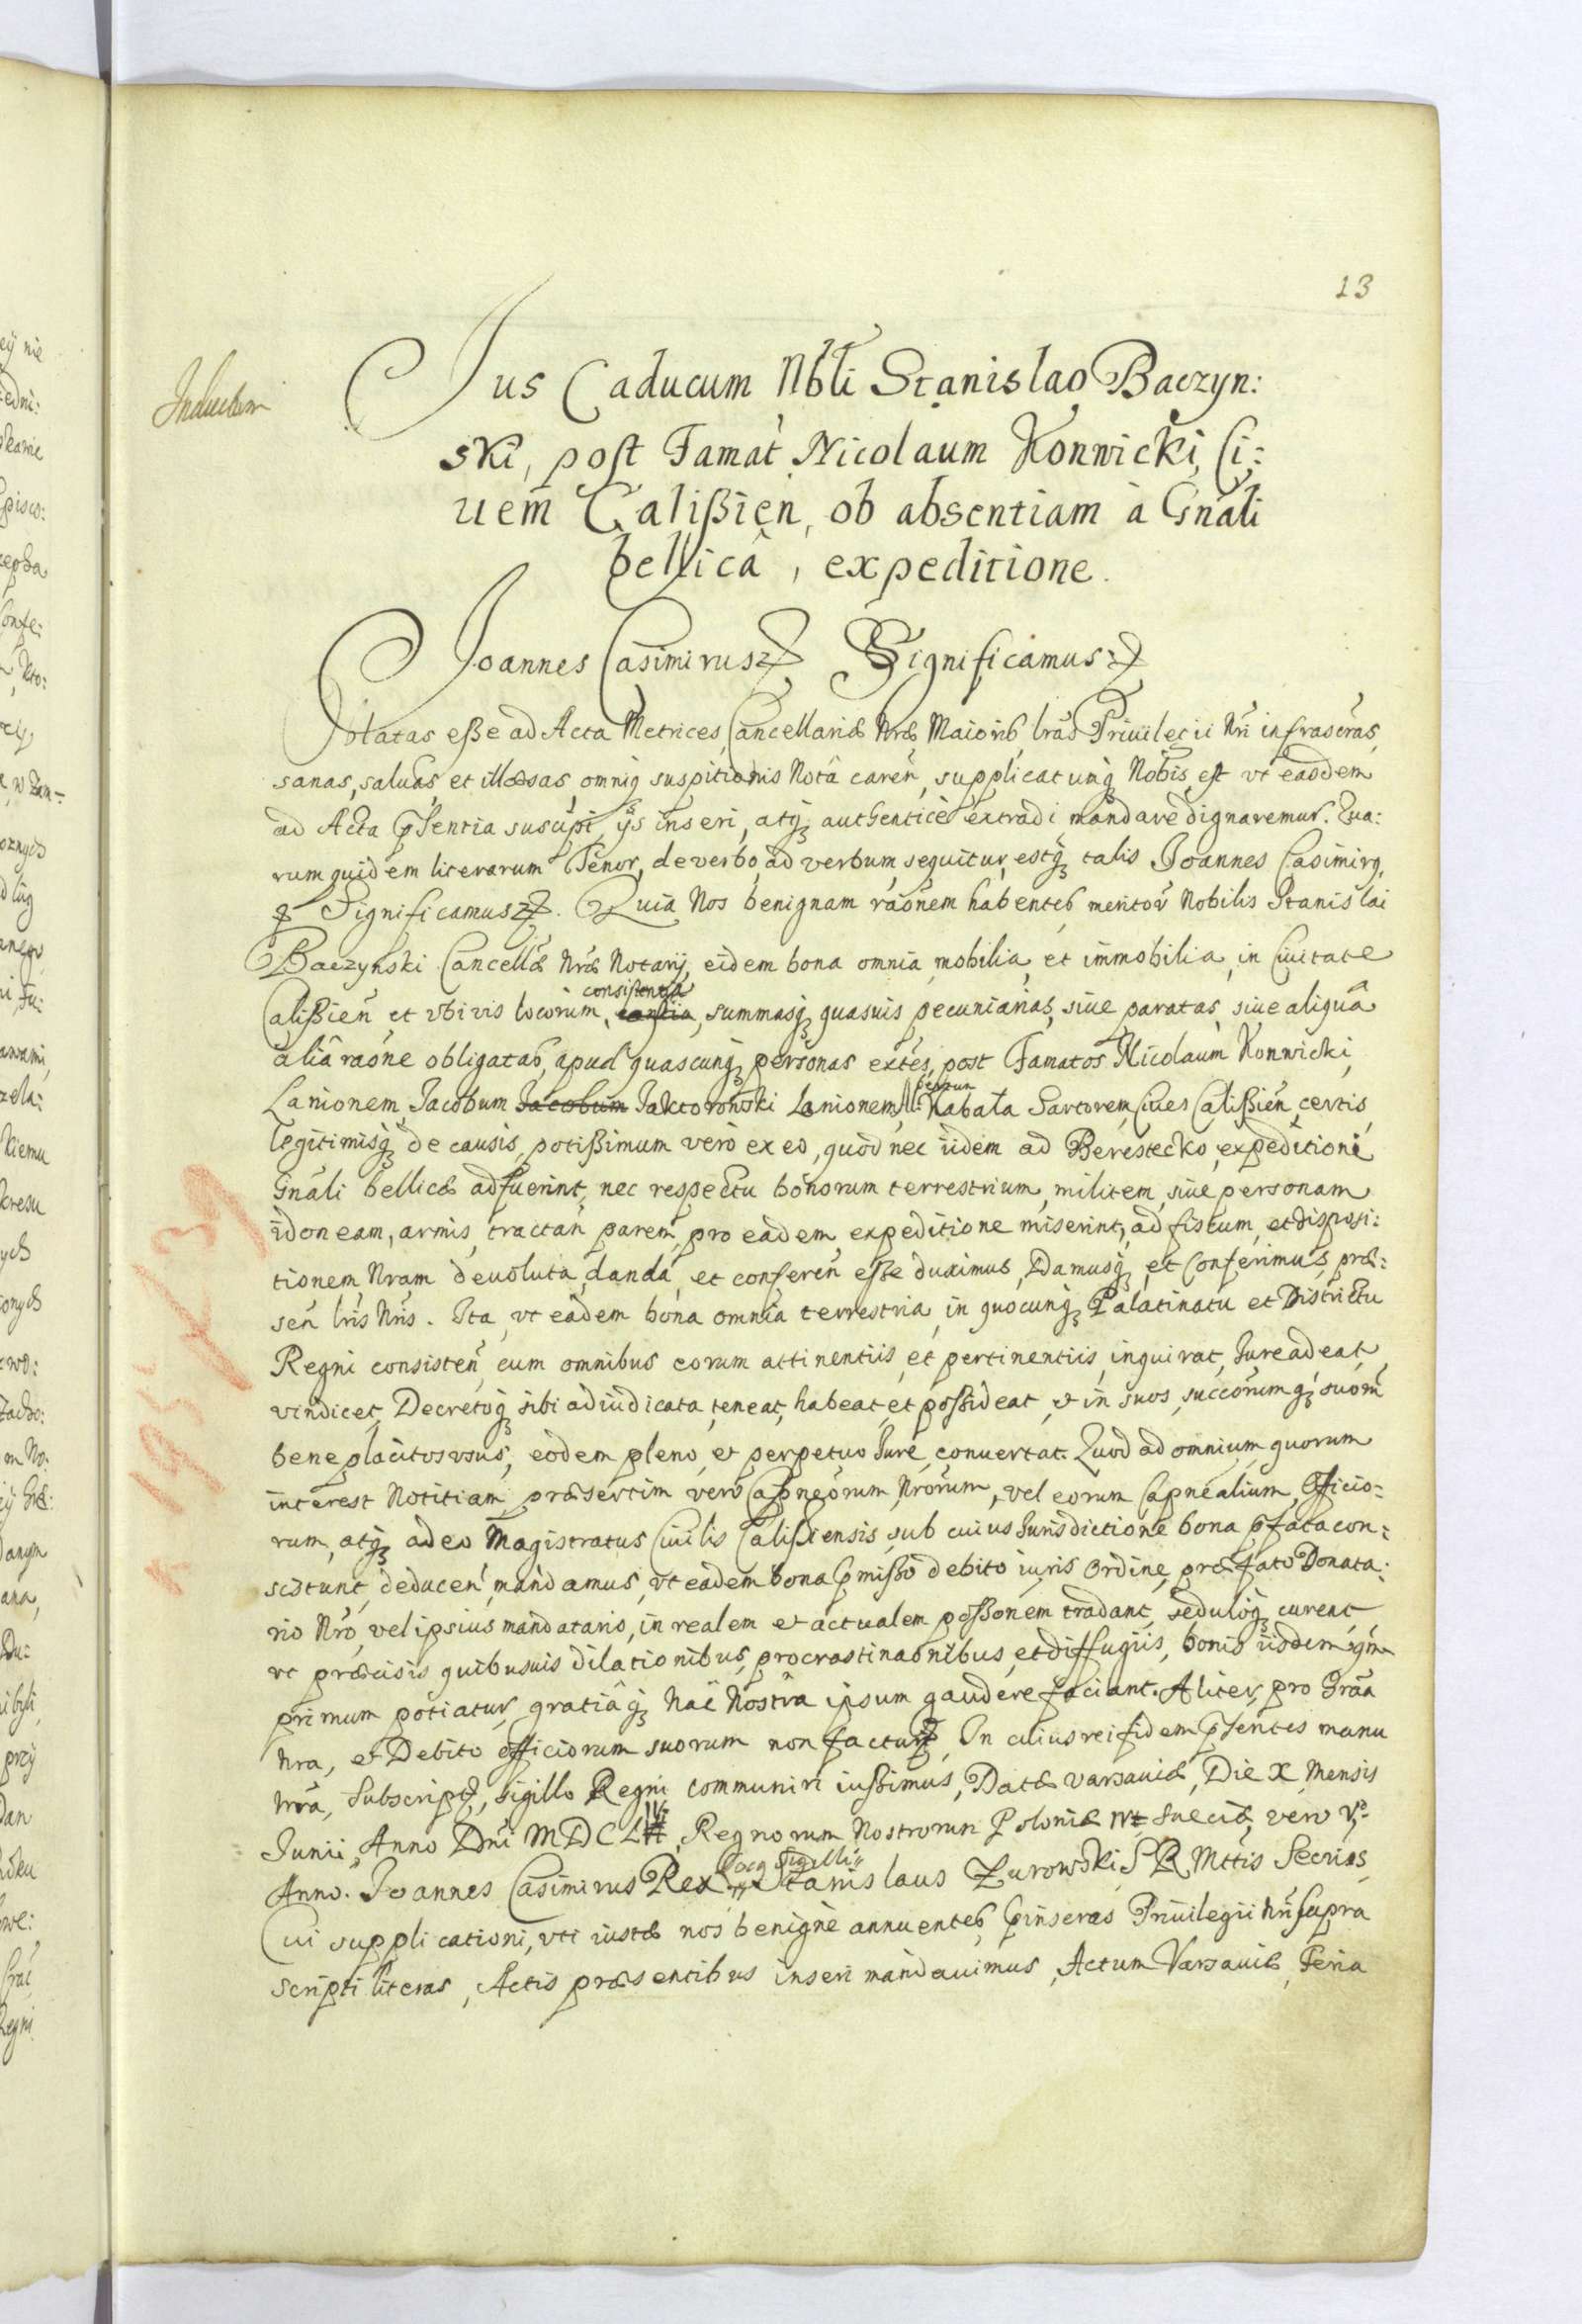 13
Inductum
Jus Caducum Nbli Stanislao Baczyn:
ski, post Famat Nicolaum Konwicki, Ci:
uem Calißien, ob absentiam à Gnali
bellicâ, expeditione.
Joannes Casimirus Significamus
Oblatas eße ad Acta Metrices, Cancellariæ Nræ Maioris, lras Priuilegii Nri infrascras,
sanas, saluas, et illæsas, omniq suspitionis Notâ caren, supplicatumq Nobis est vt easdem
ad Acta pſentia suscipi, ijs inseri, atq authenticè extradi mandare dignaremur. Qua:
rum quidem literarum Tenor, de verbo, ad verbum, sequitur, estq talis Joannes Casimirq,
Significamus. Quia Nos benignam raonem habentes meritor Nobilis Stanislai
Baczynski Cancellæ Nræ Notarij, eidem bona omnia, mobilia, et immobilia, in Ciuitate
consistentia
Calißien et vbivis locorum, summasq quasuis pecuniarias, siue paratas, siue aliquâ
aliâ raone obligatas, apud quascunq personas exties, post Famatos Nicolaum Konwicki,
Lanionem Jacobum Jacobum Jaktorowski Lanionem Kabata Sartorem, Ciues Calißien, certis,
legitimisq de causis, potißimum verò ex eo, quòd nec iidem ad Berestecko, expeditioni
Gnali bellicæ adfuerint, nec respectu bonorum terrestrium, militem, siue personam
idoneam, armis, tractan parem, pro eadem, expeditione miserint, ad fiscum, et disposi:
tionem Nram deuoluta, danda, et conferen eße duximus, Damusq, et Conferimus, præ:
sen lris Nris. Ita, vt eadem bona omnia terrestria, in quocunq Palatinatu et Districtu
Regni consisten, cum omnibus eorum attinentiis, et pertinentiis, inquirat, Jure adeat,
vindicet, Decretoq sibi adiudicata, teneat, habeat, et poßideat, et in suos, succorumq suorum
beneplacitos vsus, eodem pleno, et perpetuo Jure, conuertat. Quod ad omnium, quorum
interest Notitiam, præsertim verò Capneorum, Nrorum, vel eorum Capnealium, Officio:
rum, atq adeo Magistratus Ciuilis Calißiensis, sub cuius Jurisdictione bona pfata con:
sistunt, deducen, mandamus, vt eadem bona pmißo debito iuris Ordine, præfato Donata:
rio Nro, vel ipsius mandatario, in realem et actualem poßonem tradant, seduloq curent,
vt præcisis quibusuis dilationibus, procrastinaonibus, et diffugiis, bonis iisdem qm
primum potiatur, gratiâq hac Nostrâ ipsum gaudere faciant. Aliter, pro Graa
Nra, et Debito officiorum suorum non factur. In cuius rei fidem pſentes manu
Nrâ, Subscript, Sigillo Regni communiri iußimus, Datæ Varsauiæ, Die X Mensis
Junii, Anno Dni MDCL, Regnorum Nostrorum Poloniæ IV Sueciæ, vero V
Anno. Joannes Casimirus Rex Locq Sigilli Stanislaus Zurowski S R Mttis Secrius,
Cui supplicationi, vti iustæ nos benignè annuentes, pinseras Priuilegii Nri supra
scripti literas, Actis præsentibus inseri mandauimus, Actum Varsauiæ, Feria